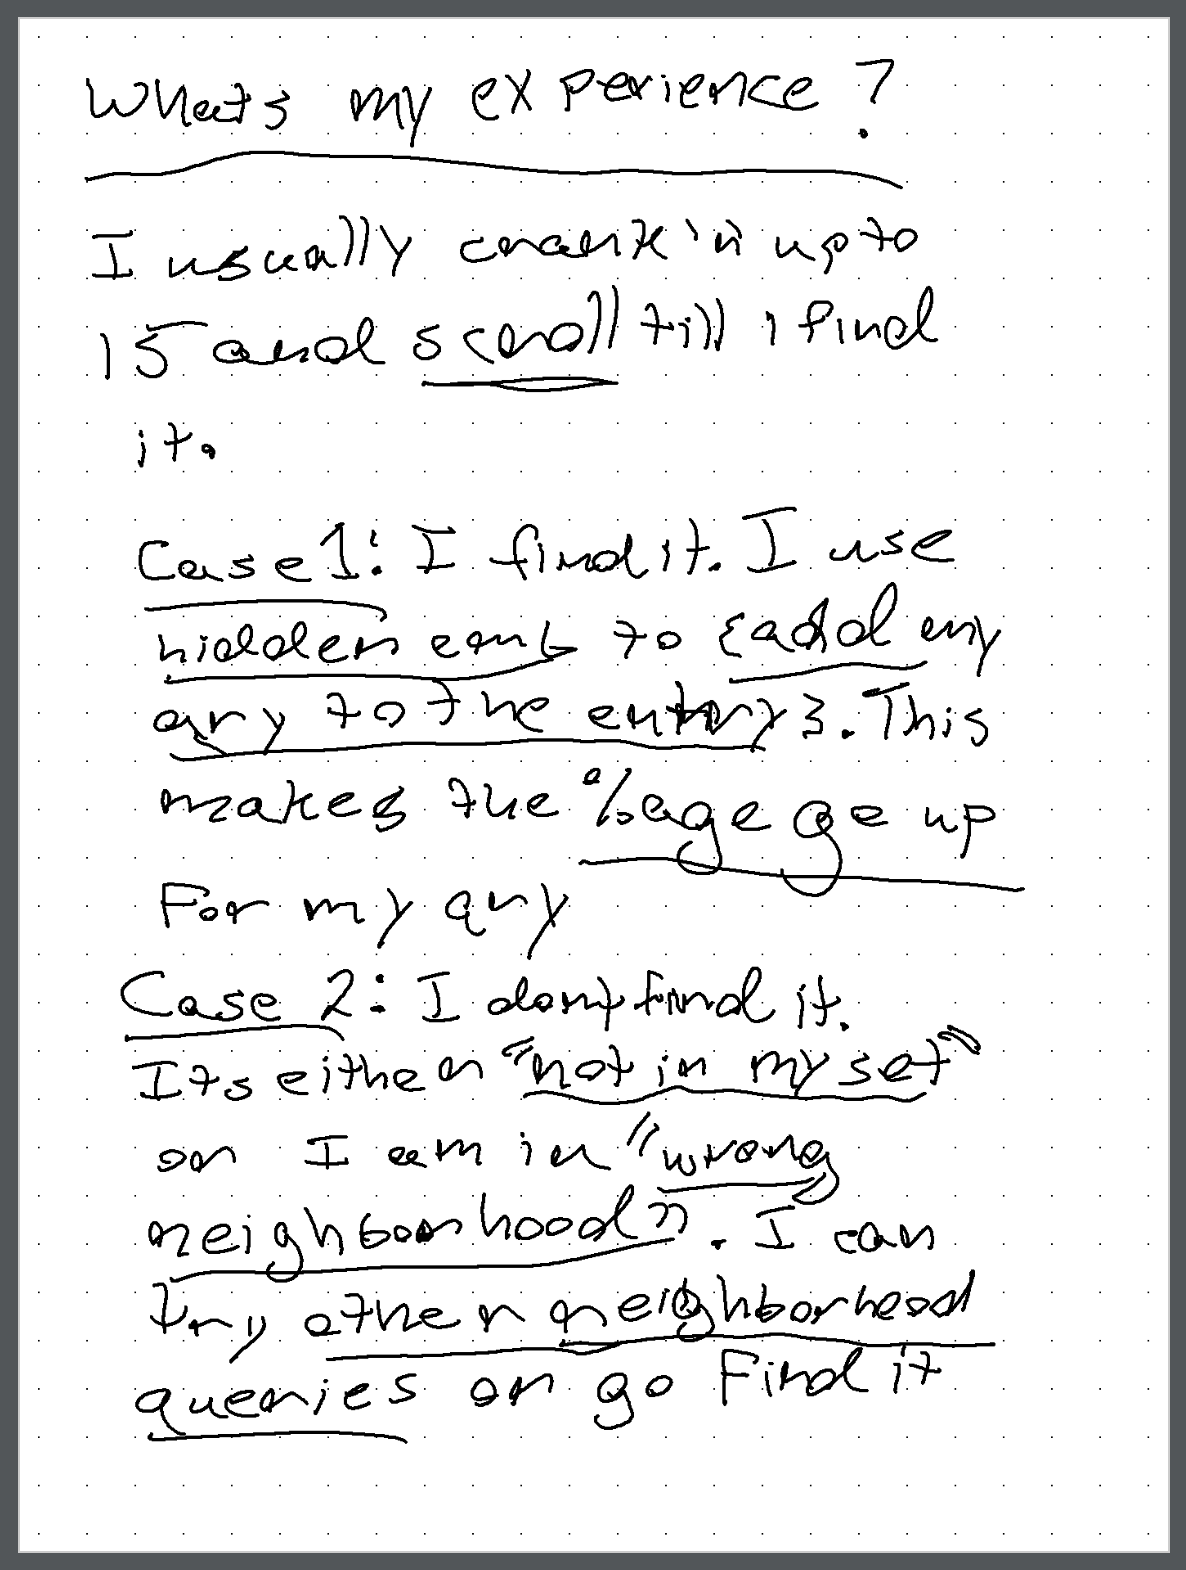 Whats my experience?
I usually crank it up to
15 and scroll till i find
it.
Case 1: I find it. I use
hidden cmt to {add my
qry to the entry}. This
makes the %age ge up
For my qry
Case 2: I dont find it.
Its either "not in my set"
or I am in "wrong
neighborhood". I can
try other neighborhood
queries or go Find it